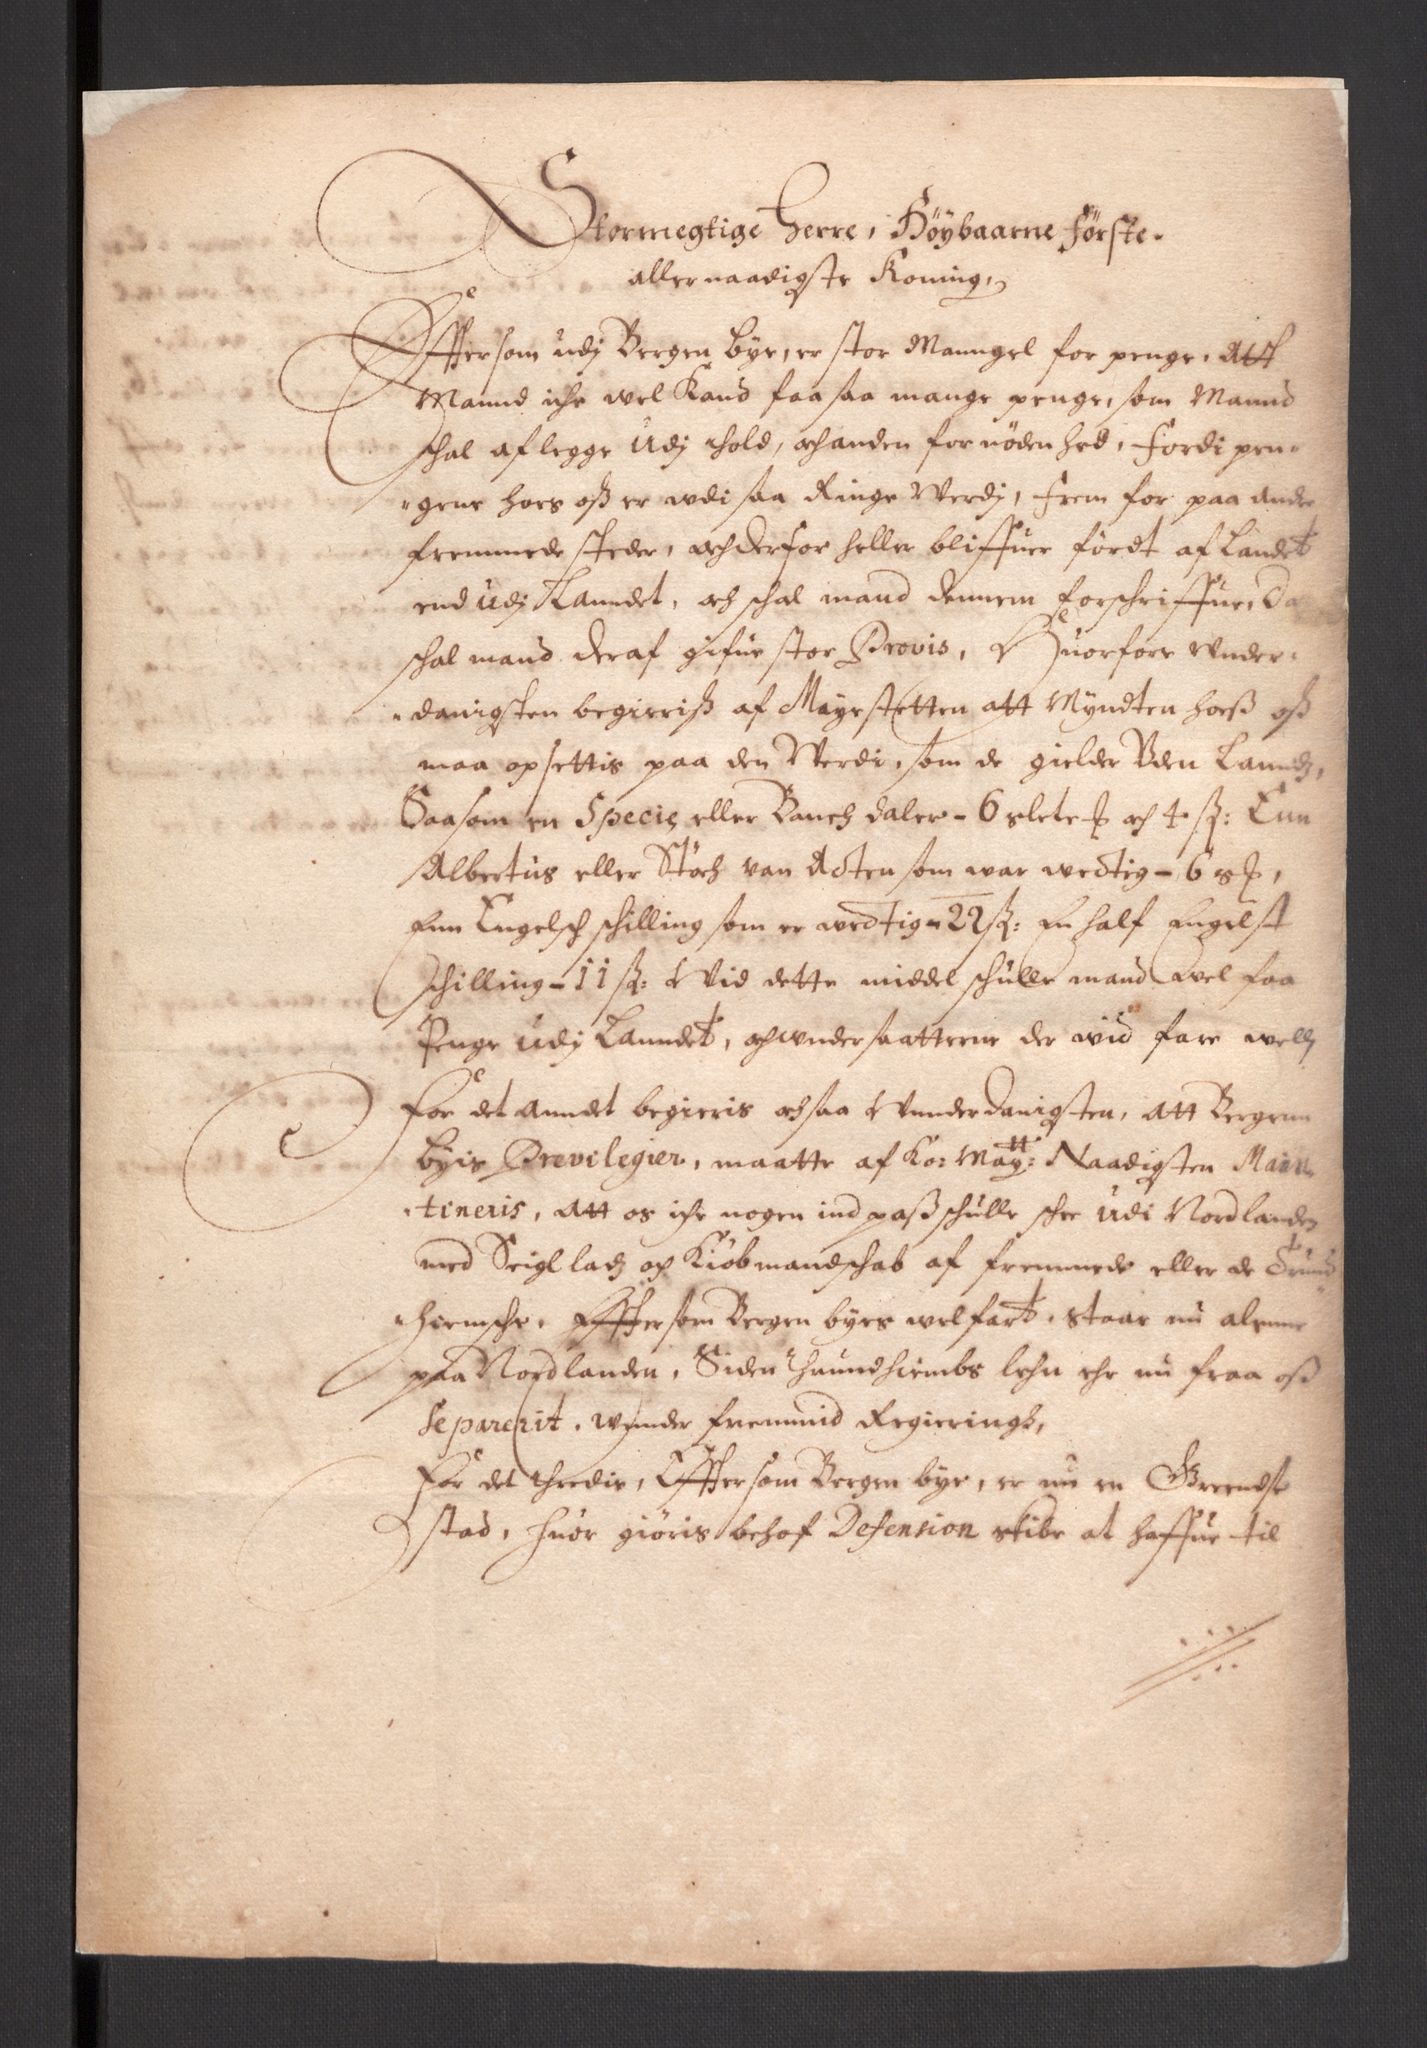 Stormegtige Herre, Höybaarne Förste.
allernaadigste Koning,
Effter som udj Bergen bye, er stor Manngel for penge, Att
Mannd iche wel Kand faa saa mange penge, som Mannd
schal aflegge Udj thold, och anden fornödenhed, Fordi pen„
„gene hoes oss er wdi saa Ringe Werdj, Frem for paa andre
fremmede steder, och derfor heller bliffuer fördt af Landet
end Udj Lanndet, och schal mand dennem forschriffue, Da
schal mand deraf gifue stor Provis, Huorfore Wnder„
„danigsten begieriss af Mayestetten att Myndten hoess oss
maa opsettis paa den Werdi, som de gielder Uden Lanndz,
Saasom en Specie eller Banch daler - 6 slete och 4 ss: Enn
Albertus eller Stöch van Acten som war wedtig - 6
Enn Engelsch schilling som er wedtig - 22 ss: En half Engelst
schilling - 11 ss: Wid dette middel schulle mand wel faa
Penge Udj Lanndet, och wndersaatterne der wid fare well
For det Anndet begieris och saa Wnnderdanigsten, Att Bergenn
byis Previlegier, maatte af Ko: Maytt: Naadigsten Main„
„tineris, Att os iche nogen indpass schulle schee Udi Nordlanden
med Seigllads og Kiöbmandschab af fremmede eller de Trund„
„hiemsche, Effter som Bergen byes welfart, staar nu alenne
paa Nordlanden, Siden Thrundhiembs lehn ehr nu fraa oss
Separerit, wnnder fremmid Regierings,
For det thredie, Effter som Bergen bye, er nu en Greendse
stad, huor giöris behof Defension skibe at haffue til